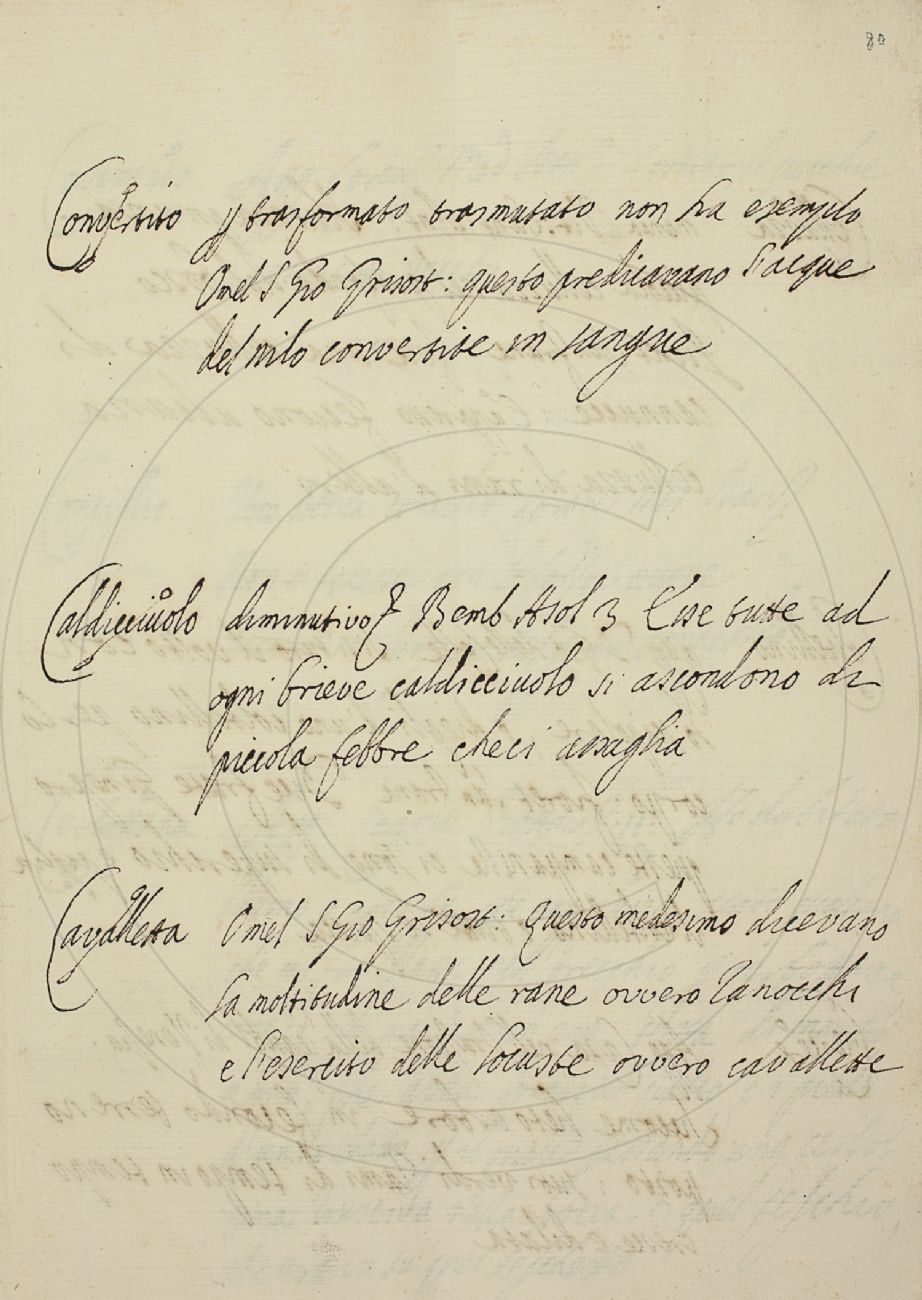 80
Convertito p trasformato trasmutato non ha esempio
Omel S Gio Grisost: questo predicavano l'acque
del nilo convertite in sangue
Caldicciuolo diminutivo Bemb Asol 3 tutte ad
ogni brieve caldicciuolo si ascondono di
piccola febbre checi assaglia
Cavalletta Omel S Gio Grisost: Questo medesimo dicevano
la moltitudine delle rane ovvero ranocchi
e l'esercito delle locuste ovvero cavallette